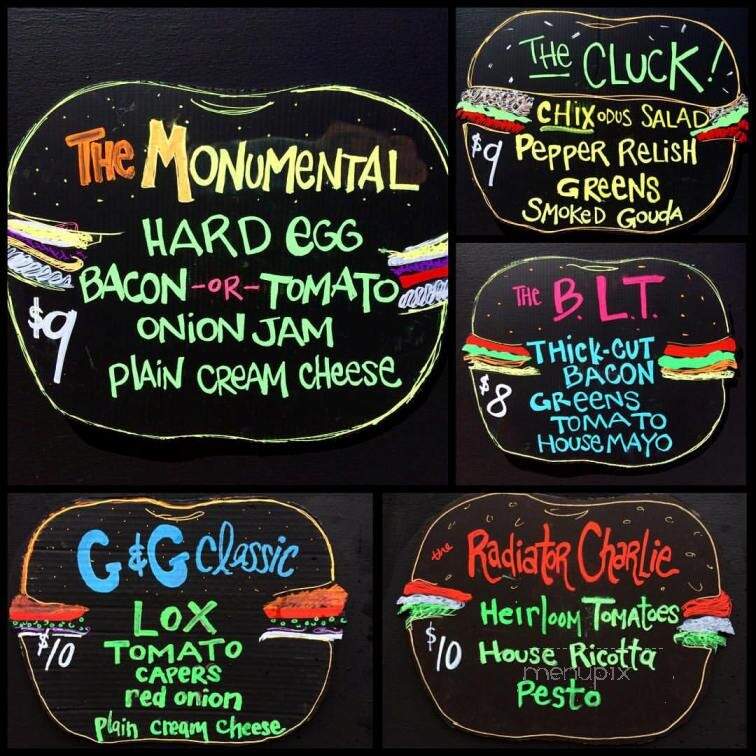 The Monumental
HARD EGG
BACON -OR- TOMATO
ONION JAM
PLAIN CREAM CHEESE
$9
The CLUCK!
CHIXODUS SALAD
$9
PEPPER RELISH
GREENS
SMOKED GOUDA
THE B.L.T.
THICK-CUT
BACON
$8
GREENS
TOMATO
HOUSE MAYO
G & G Classic
LOX
$10
TOMATO
CAPERS
red onion
Plain cream cheese
the Radiator Charlie
Heirloom Tomatoes
$10
House Ricotta
menupix
Pesto